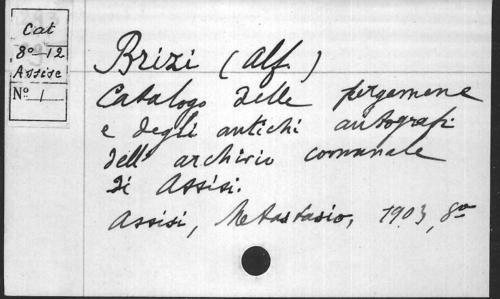 Cat
8°-12
Assise
N° 1
Brizi (Alf.)
Catalogo delle pergamene
e degli antichi autografi
dell' archivio comunale
di Assisi.
Assisi, Metastasio, 1903, 8°